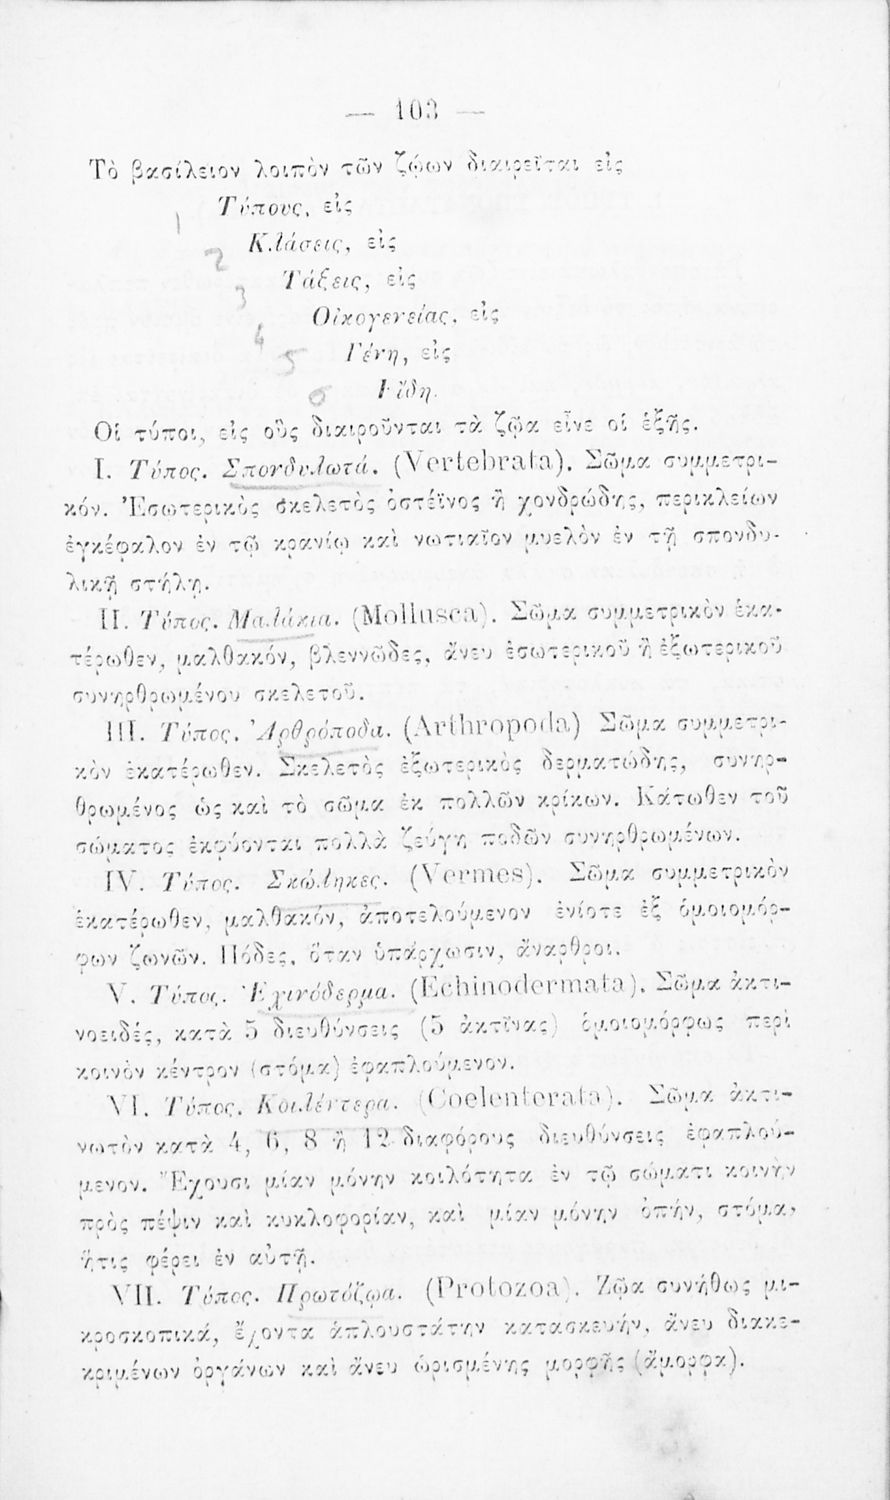 — 103 —
Τὸ βασίλειον λοιπὸν τῶν ζῴων διαιρεῖται εἰς
1 Τύπους, εἰς
2 Κλάσεις, εἰς
3 Τάξεις, εἰς
4 Οἰκογενείας, εἰς
5 Γένη, εἰς
6 Εἴδη.
Οἱ τύποι, εἰς οὓς διαιροῦνται τὰ ζῷα εἶνε οἱ ἑξῆς.
I. Τύπος. Σπονδυλωτά. (Vertebrata). Σῶμα συμμετρι-
κόν. Ἐσωτερικὸς σκελετὸς ὀστέϊνος ἢ χονδρώδης, περικλείων
ἐγκέφαλον ἐν τῷ κρανίῳ καὶ νωτιαῖον μυελὸν ἐν τῇ σπονδυ-
λικῇ στήλῃ.
II. Τύπος. Μαλάκια. (Mollusca). Σῶμα συμμετρικὸν ἑκα-
τέρωθεν, μαλθακόν, βλεννῶδες, ἄνευ ἐσωτερικοῦ ἢ ἐξωτερικοῦ
συνηρθρωμένου σκελετοῦ.
III. Τύπος. Ἀρθρόποδα. (Arthropoda) Σῶμα συμμετρι-
κὸν ἑκατέρωθεν. Σκελετὸς ἐξωτερικὸς δερματώδης, συνηρ-
θρωμένος ὡς καὶ τὸ σῶμα ἐκ πολλῶν κρίκων. Κάτωθεν τοῦ
σώματος ἐκφύονται πολλὰ ζεύγη ποδῶν συνηρθρωμένων.
IV. Τύπος. Σκώληκες. (Vermes). Σῶμα συμμετρικὸν
ἑκατέρωθεν, μαλθακόν, ἀποτελούμενον ἐνίοτε ἐξ ὁμοιομόρ-
φων ζωνῶν. Πόδες, ὅταν ὑπάρχωσιν, ἄναρθροι.
V. Τύπος. Ἐχινόδερμα. (Echinodermata). Σῶμα ἀκτι-
νοειδές, κατὰ 5 διευθύνσεις (5 ἀκτῖνας) ὁμοιομόρφως περὶ
κοινὸν κέντρον (στόμα) ἐφαπλούμενον.
VI. Τύπος. Κοιλέντερα. (Coelenterata). Σῶμα ἀκτι-
νωτὸν κατὰ 4, 6, 8 ἢ 12 διαφόρους διευθύνσεις ἐφαπλού-
μενον. Ἔχουσι μίαν μόνην κοιλότητα ἐν τῷ σώματι κοινὴν
πρὸς πέψιν καὶ κυκλοφορίαν, καὶ μίαν μόνην ὀπήν, στόμα,
ἥτις φέρει ἐν αὐτῇ.
VII. Τύπος. Πρωτόζωα. (Protozoa). Ζῷα συνήθως μι-
κροσκοπικά, ἔχοντα ἁπλουστάτην κατασκευήν, ἄνευ διακε-
κριμένων ὀργάνων καὶ ἄνευ ὡρισμένης μορφῆς (ἄμορφα).